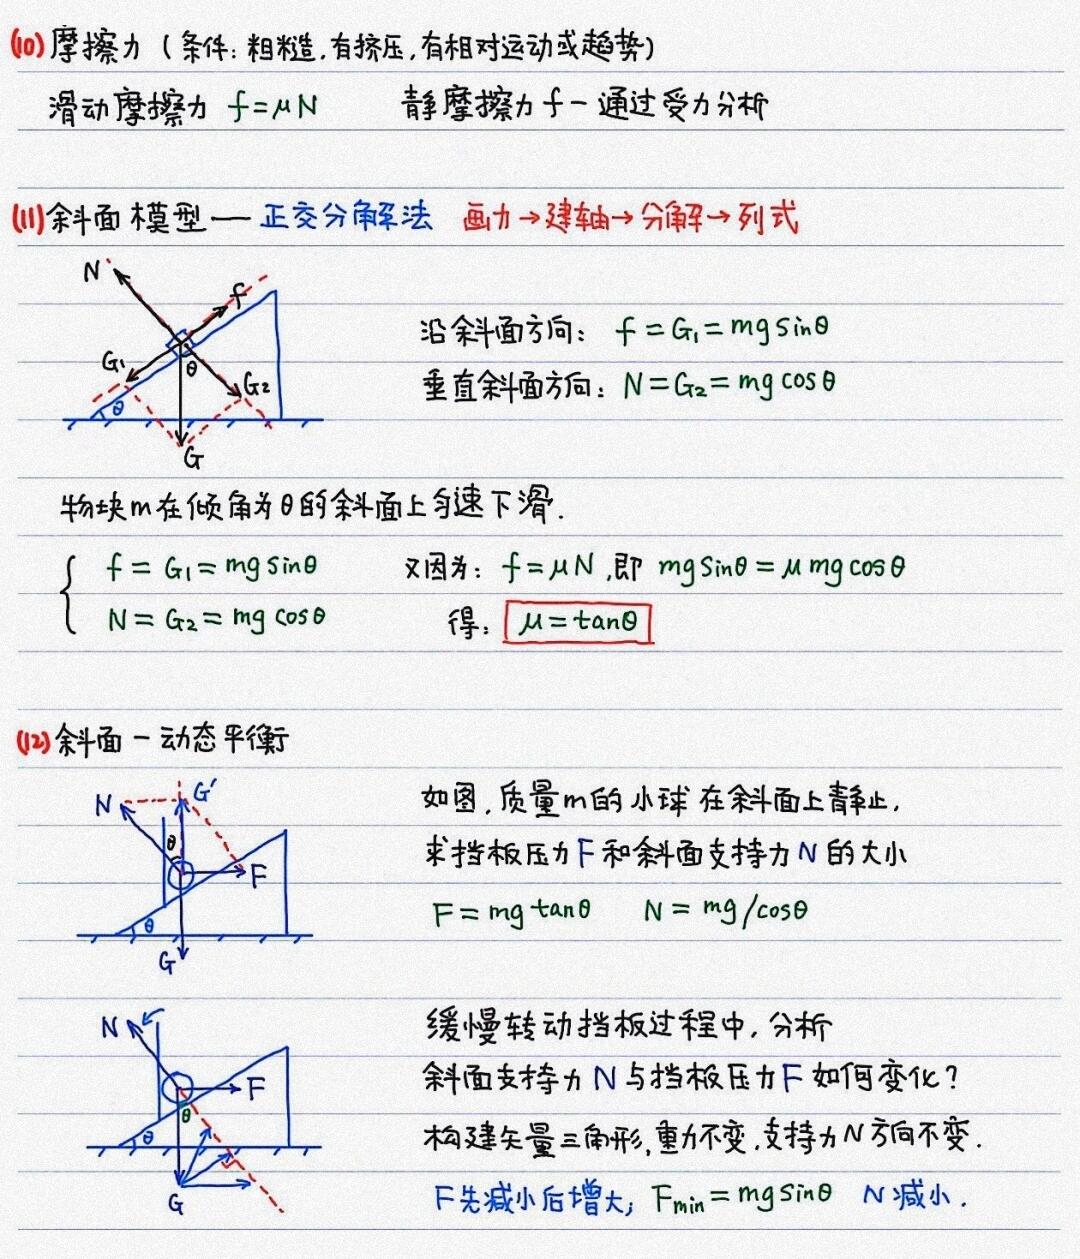 (10) 摩擦力（条件：粗糙，有挤压，有相对运动或趋势）
滑动摩擦力 f=μN 静摩擦力 f - 通过受力分析
(11) 斜面模型 — 正交分解法 画力→建轴→分解→列式
N
f
沿斜面方向： f = G₁ = mg sinθ
G₁ θ G₂
垂直斜面方向： N = G₂ = mg cosθ
θ
G
物块m在倾角为θ的斜面上匀速下滑.
{ f = G₁ = mg sinθ 又因为： f = μN ,即 mg sinθ = μ mg cosθ
N = G₂ = mg cosθ 得： μ = tanθ
(12) 斜面 - 动态平衡
N G′
如图，质量m的小球在斜面上静止，
θ
F
求挡板压力F和斜面支持力N的大小
θ
F = mg tanθ N = mg/cosθ
G
N
缓慢转动挡板过程中，分析
F
斜面支持力N与挡板压力F如何变化？
θ θ
构建矢量三角形，重力不变，支持力N方向不变.
G
F先减小后增大； Fmin = mg sinθ N减小.